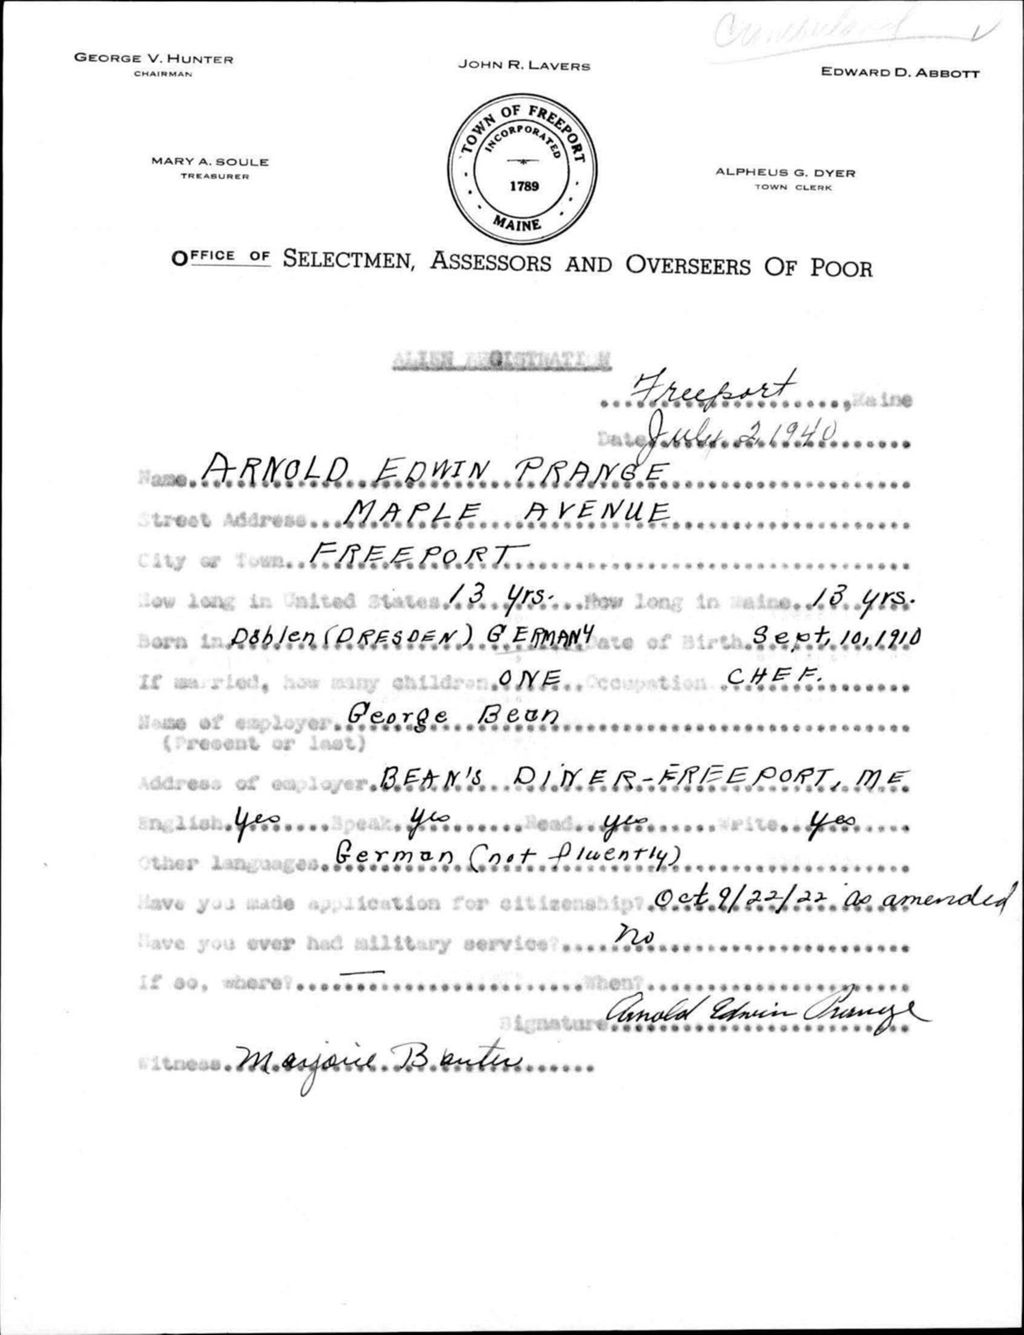 Cumberland ✓
GEORGE V. HUNTER
CHAIRMAN
JOHN R. LAVERS
EDWARD D. ABBOTT
TOWN OF FREEPORT
INCORPORATED
1789
MAINE
MARY A. SOULE
TREASURER
ALPHEUS G. DYER
TOWN CLERK
OFFICE OF SELECTMEN, ASSESSORS AND OVERSEERS OF POOR
ALIEN REGISTRATION
Freeport, Maine
Date July 2 1940
Name ARNOLD EDWIN PRANGE
Street Address MAPLE AVENUE
City or Town FREEPORT
How long in United States 13 yrs. How long in Maine 13 yrs.
Born in Döblen (DRESDEN) GERMANY Date of Birth Sept, 10, 1910
If married, how many children ONE Occupation CHEF.
Name of employer George Bean
(Present or last)
Address of employer BEAN'S DINER-FREEPORT, ME
English yes Speak yes Read yes Write yes
Other languages German (not fluently)
Have you made application for citizenship? Oct 9/22/22 as amended
Have you ever had military service? No
If so, where? — When?
Signature Arnold Edwin Prange
Witness Marjorie Banter